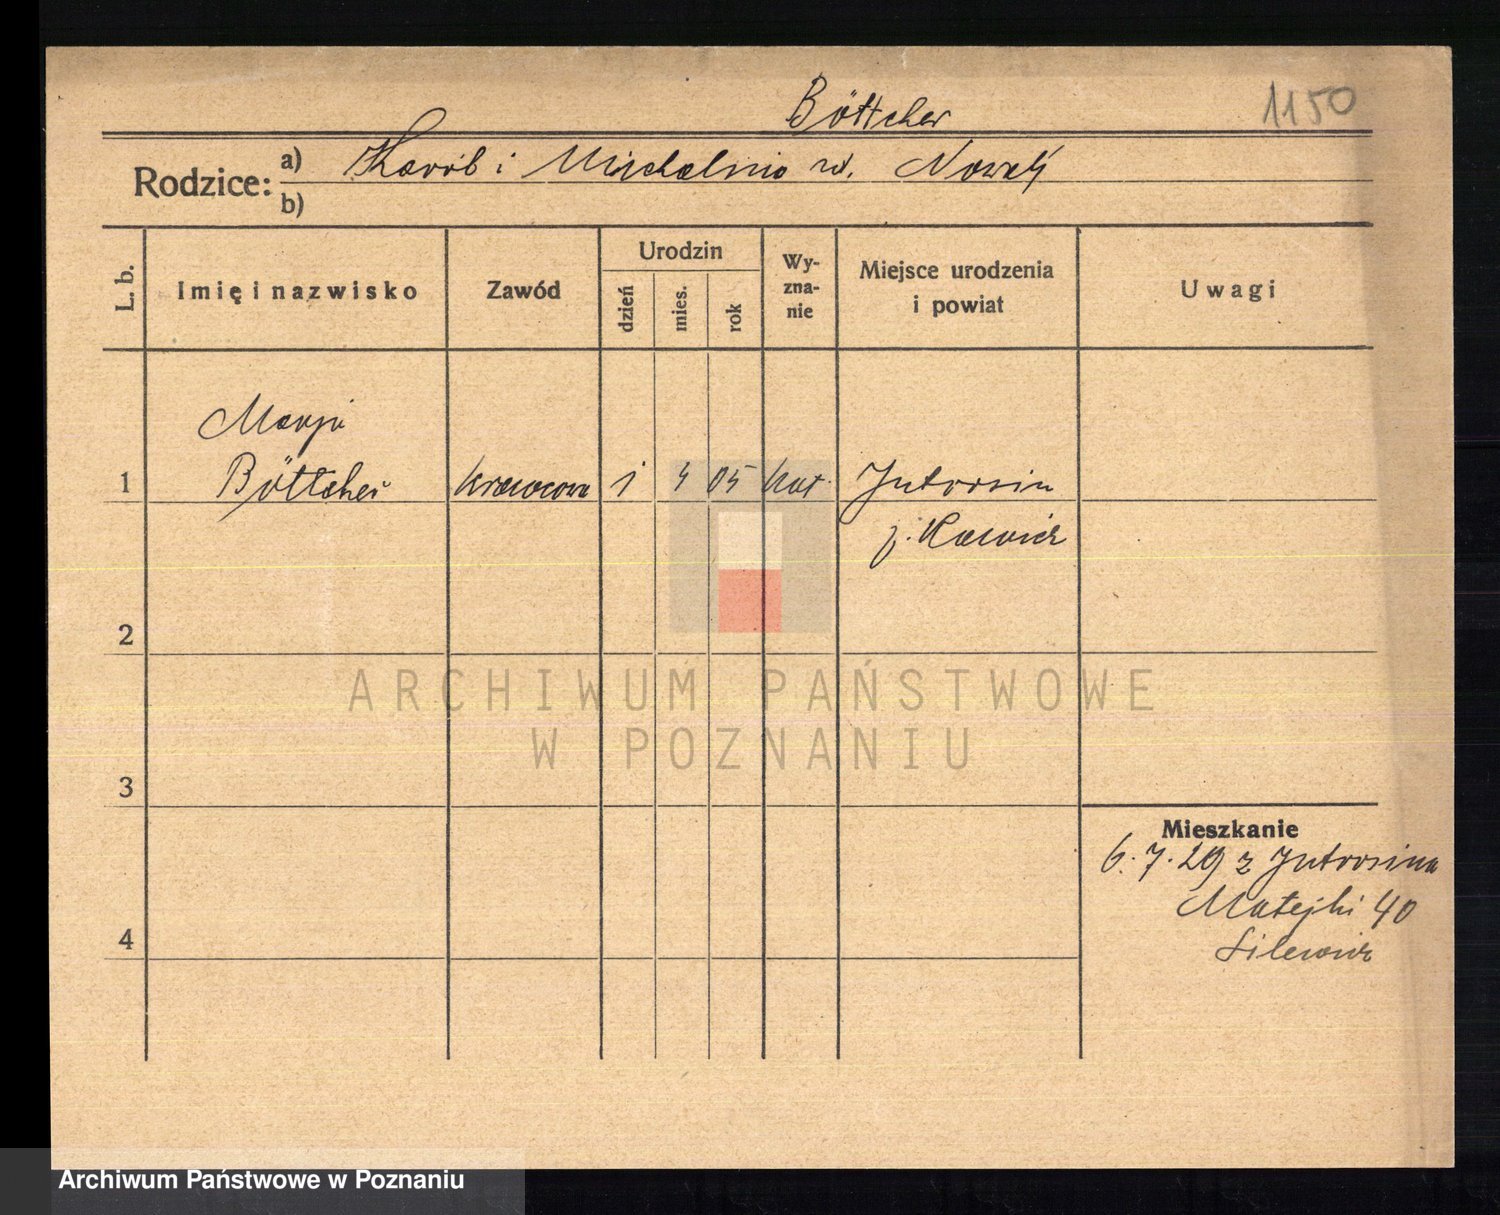 Böttcher
1150
Rodzice: a) Karól i Michalina rd. Nowak
b)
L. b.
Imię i nazwisko
Zawód
Urodzin
dzień
mies.
rok
Wy-
zna-
nie
Miejsce urodzenia
i powiat
Uwagi
Marja
1 Böttcher krawcowa 1 4 05 kat. Jutrosin
p. Rawicz
2
ARCHIWUM PAŃSTWOWE
W POZNANIU
3
Mieszkanie
6.7.29 z Jutrosina
Matejki 40
4
Archiwum Państwowe w Poznaniu